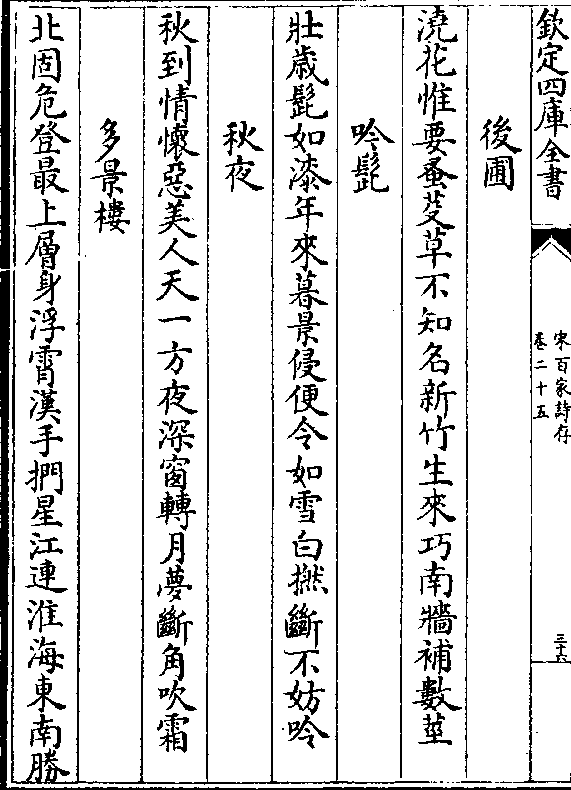 欽定四庫全書
宋百家詩存
卷二十五
三十六
後圃
澆花惟要蚤芟草不知名新竹生來巧南牆補數莖
吟髭
壯歲髭如漆年來暮景侵便令如雪白撚斷不妨吟
秋夜
秋到情懷惡美人天一方夜深窗轉月夢斷角吹霜
多景樓
北固危登最上層身浮霄漢手捫星江連淮海東南勝